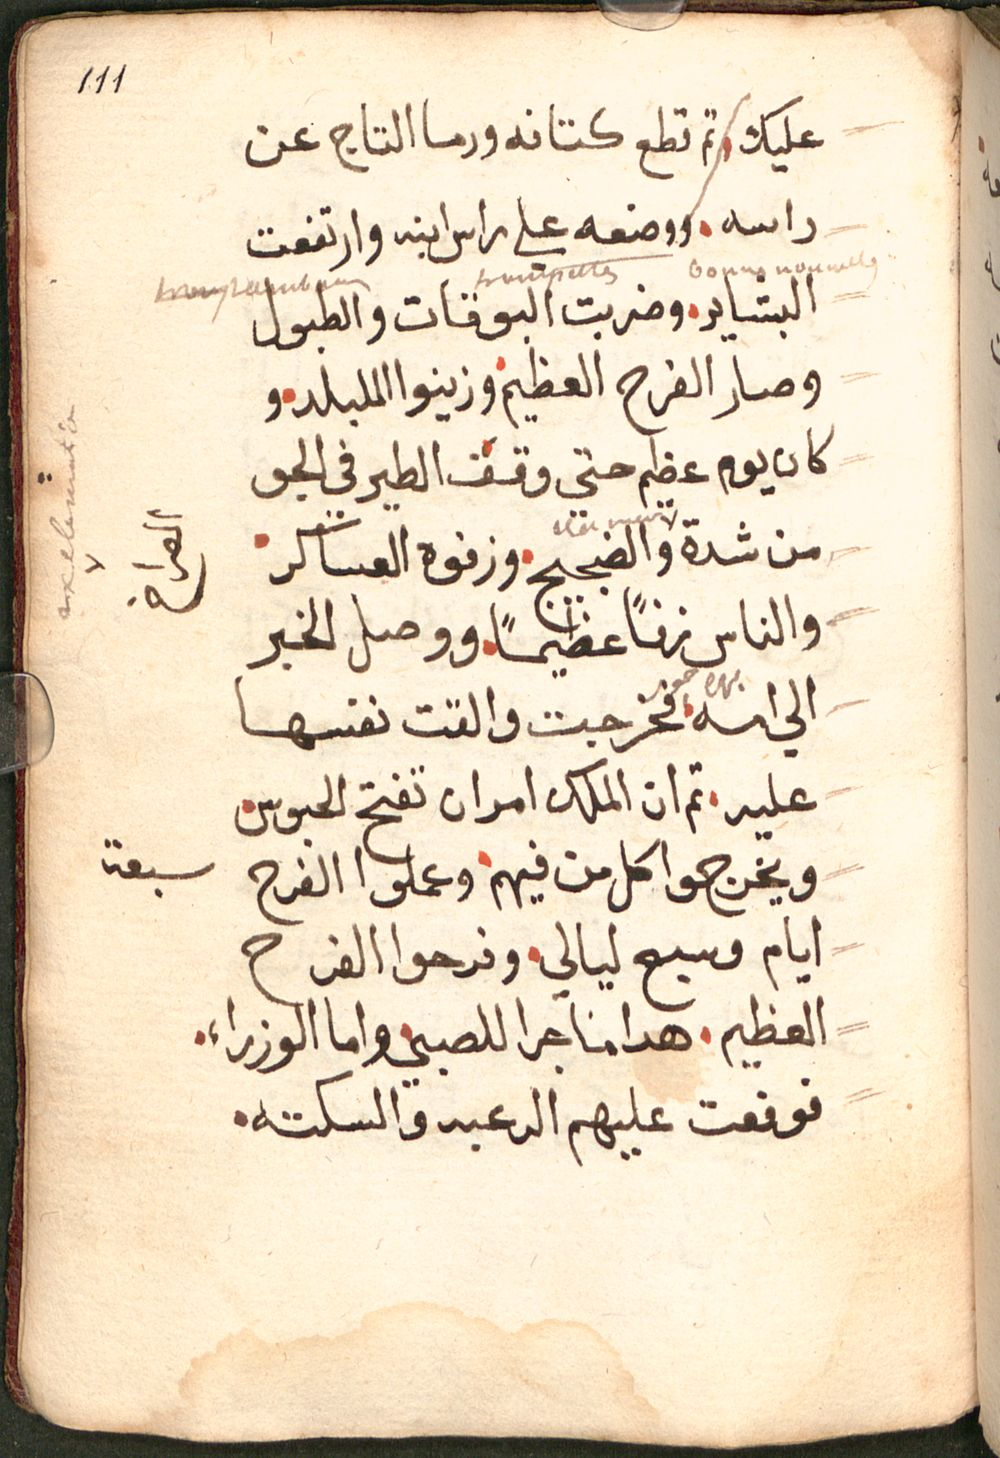 111
عليك. تم قطع كتافه ورما التاج عن
راسه. ووضعه على راس ابنه وارتفعت
bonne nouvelle
trompettes
البشاير. وضربت البوقات والطبول
وصار الفرح العظيم. وزينوا المبلد. و
كان يوم عظيم حتي وقف الطير في الجو
من شدة والضجيج. وزفوه العساكر.
الصراخ
exclamation
والناس زفًا عظيمًا. ووصل الخبر
الي امه. فخرجت والقت نفسها
بهرجور
عليه. تم ان الملك امر ان تفتح الحبوس.
ويخرجوا كل من فيهم. وعملوا الفرح سبعة
ايام وسبع ليالي. وفرحوا الفرح
العظيم. هدا ما جرا للصبي. واما الوزراء.
فوقعت عليهم الرعبه والسكته.